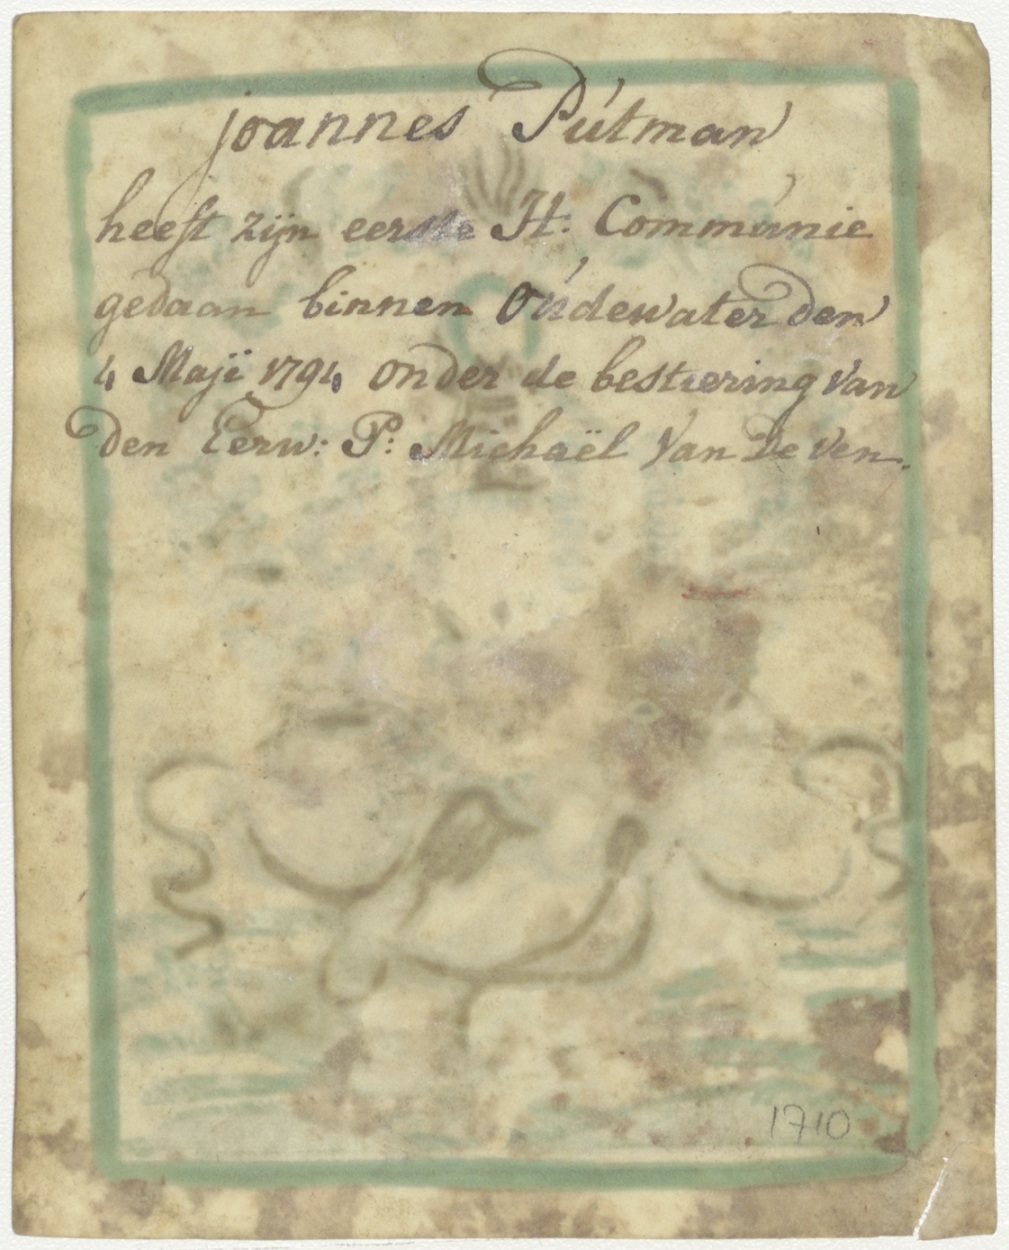 joannes Pútman
heeft zijn eerste H: Commúnie
gedaan binnen Oúdewater den
4 Maji 1794 onder de bestiering van
den Eerw: P: Michaël Van De Ven.
1710